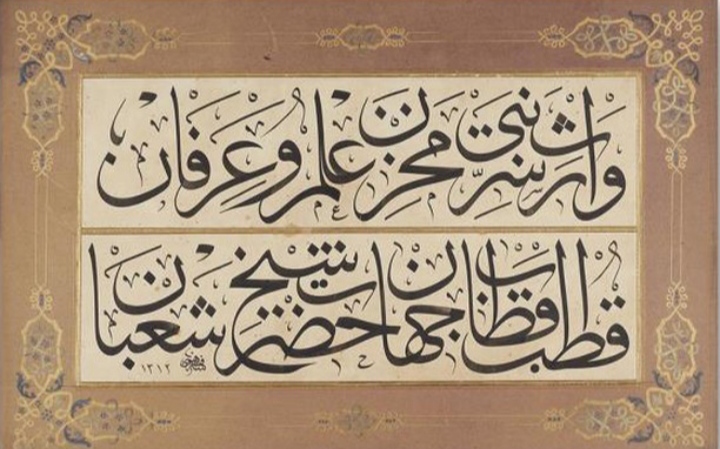 وارث سر نبی مخزن علم و عرفان
قطب اقطاب جهان حضرت شیخ شعبان
١٣١٢